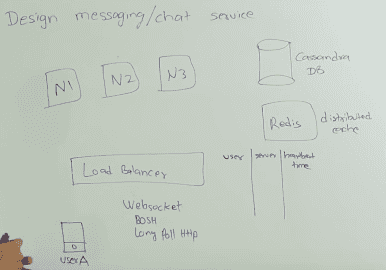 Design messaging/chat service
N1 N2 N3
Cassandra
DB
Redis
distributed
cache
user server heartbeat
time
Load Balancer
Websocket
BOSH
Long Poll HTTP
userA